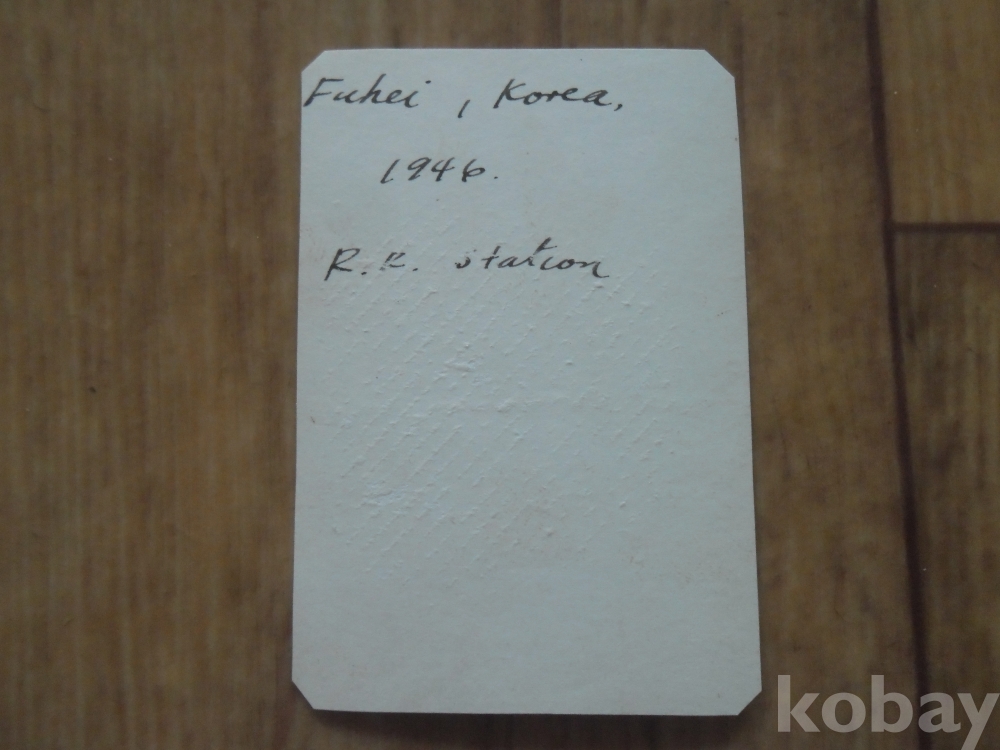 Fuhei, Korea,
1946.
R.R. station
kobay